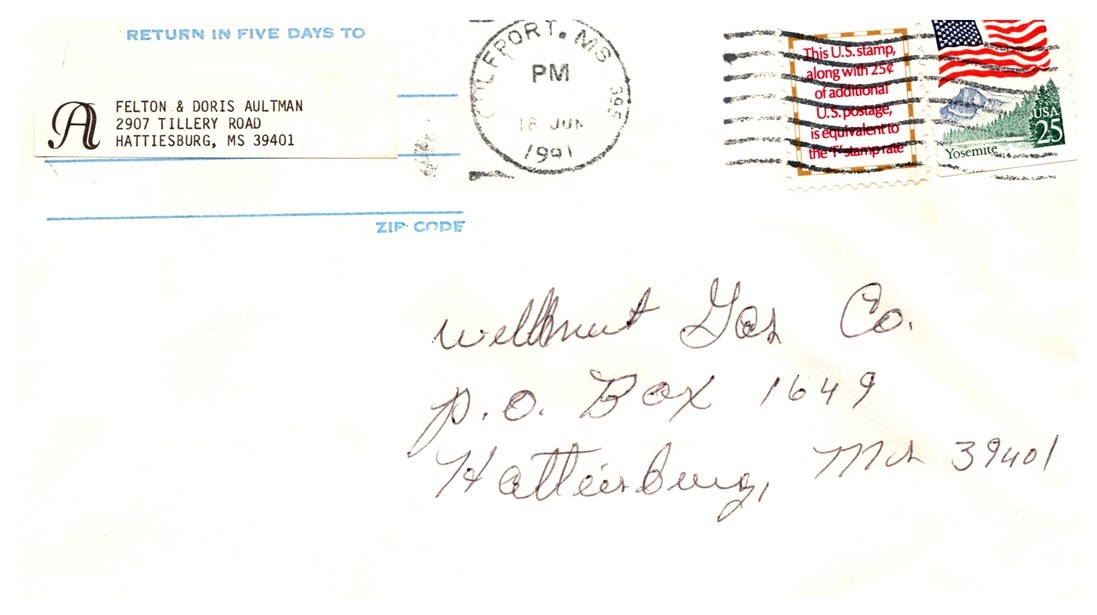 RETURN IN FIVE DAYS TO
A
FELTON & DORIS AULTMAN
2907 TILLERY ROAD
HATTIESBURG, MS 39401
ZIP CODE
GULFPORT, MS 395
PM
18 JUN
1991
This U.S. stamp,
along with 25¢
of additional
U.S. postage,
is equivalent to
the 'F' stamp rate
USA
25
Yosemite
Gas Co.
P.O. Box 1649
Hattiesburg, Ms 39401